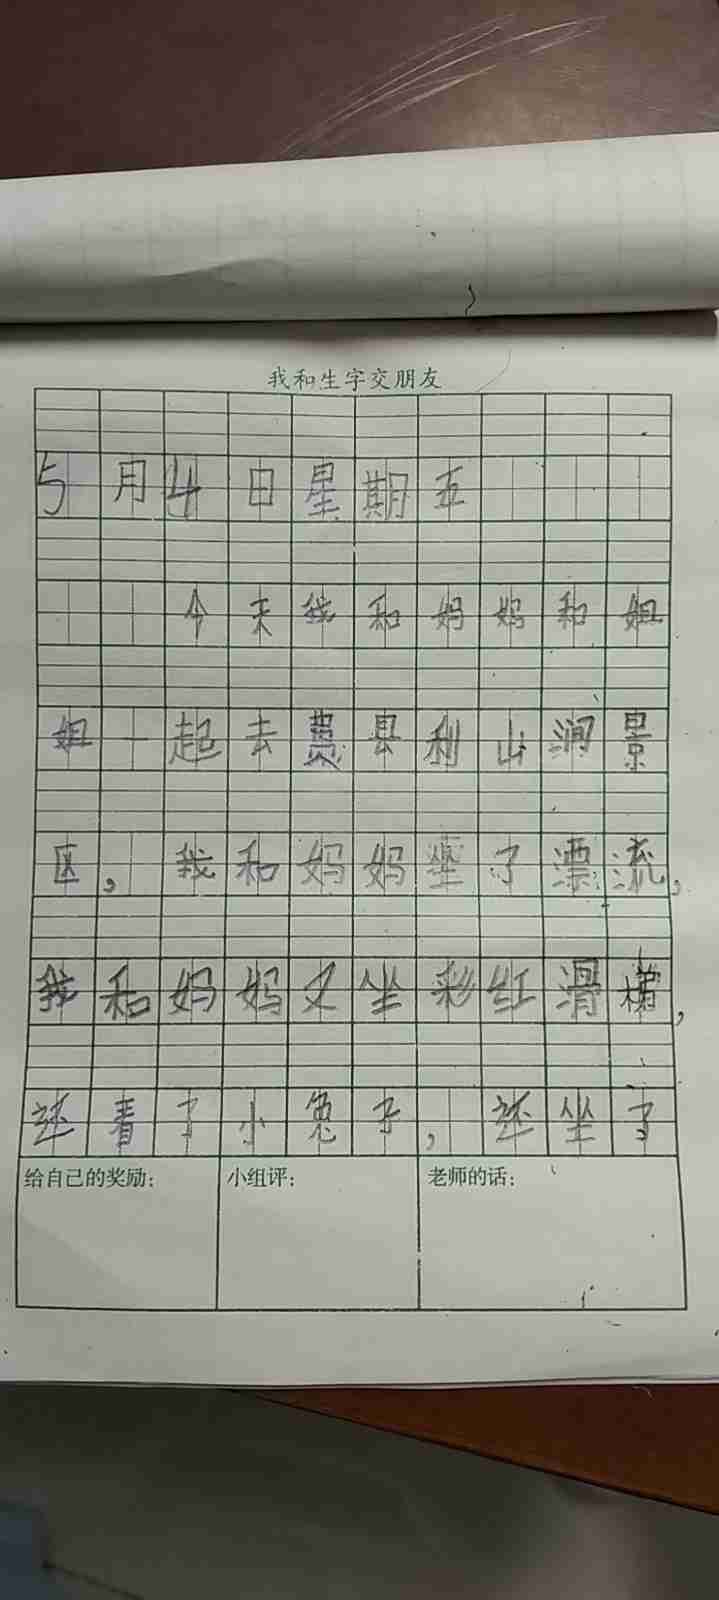 我和生字交朋友
5月4日星期五
今天我和妈妈和姐
姐一起去费县利山涧景
区，我和妈妈坐了漂流，
我和妈妈又坐彩红滑梯，
还看了小兔子，还坐了
给自己的奖励： 小组评： 老师的话：